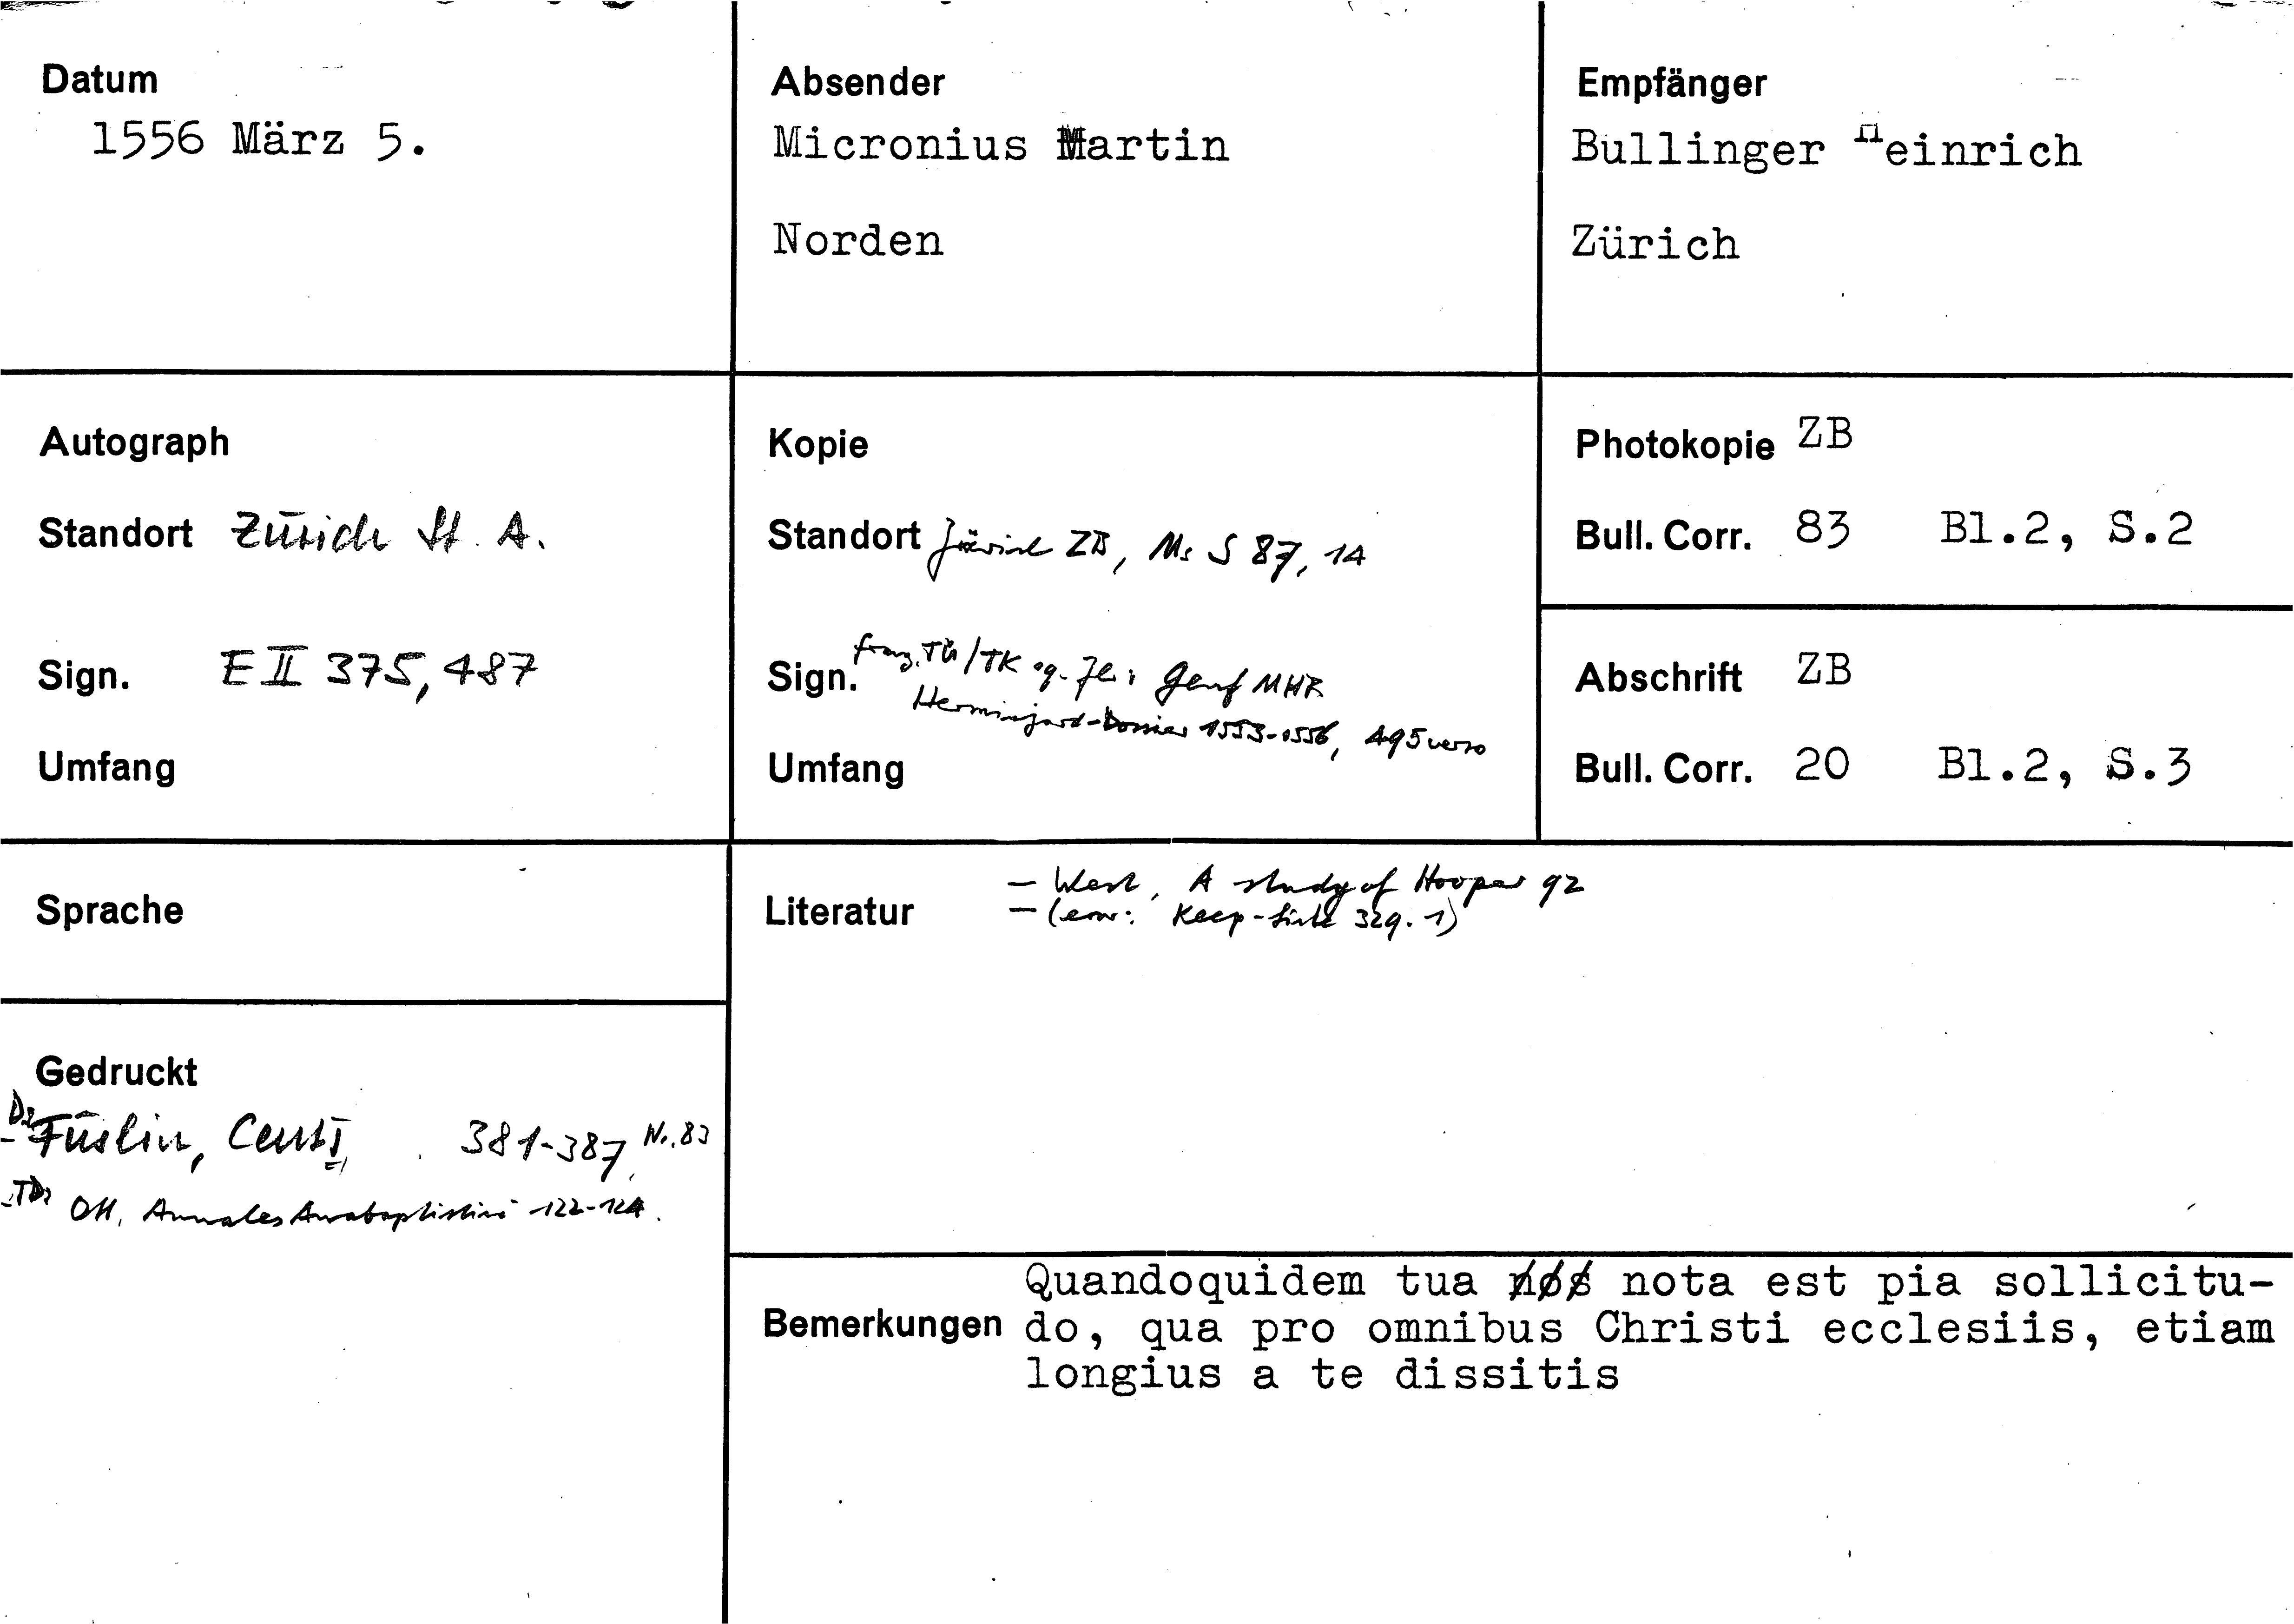 Datum
1556 März 5.
Absender
Micronius Martin
Norden
Empfänger
Bullinger Heinrich
Zürich
Autograph
Standort Zürich St. A.
Sign. E II 375, 487
Umfang
Kopie
Standort Zürich ZB, Ms S 87, 14
Sign. franz. TÜ/TK 19. Jh.: Genf MHR
Herminjard-Dossier 1553-1556, 495 verso
Umfang
Photokopie ZB
Bull. Corr. 83 Bl.2, S.2
Abschrift ZB
Bull. Corr. 20 Bl.2, S.3
Sprache
Literatur
- West, A study of Hooper 92
- (erw: Keep- 329. 1)
Gedruckt
- Füslin, Cent I, 381-387, Nr. 83
- Ott, Annales Anabaptistici 122-124.
Bemerkungen
Quandoquidem tua nos nota est pia sollicitu-
do, qua pro omnibus Christi ecclesiis, etiam
longius a te dissitis